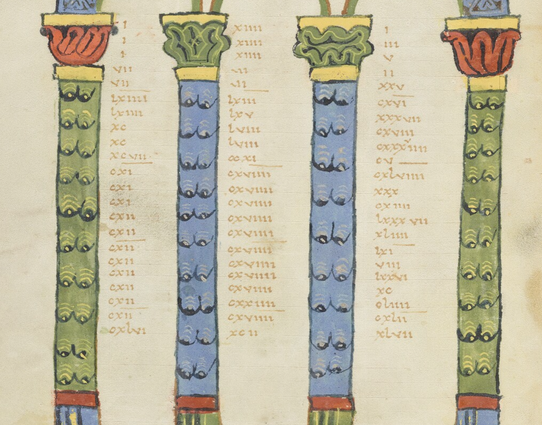 I
I
I
VII
VII
LXIIII
LXIIII
XC
XC
XCVII
CXI
CXI
CXI
CXII
CXII
CXII
CXII
CXII
CXII
CXII
CXII
CXLVI
XIIII
XIIII
XIIII
LXIII
LXV
LVIII
LVIII
CCXI
CXVIIII
CXVIIII
CXVIIII
CXVIIII
CXVIIII
CXVIIII
CXVIIII
CXVIIII
CXVIIII
XCII
I
III
V
II
XXV
CXVI
XXXVII
CXVIII
CV
CXLVIII
XXX
CXIIII
LXXXVII
XLIIII
LXI
VIII
LXXVI
XC
CLIIII
CXLII
XLVII